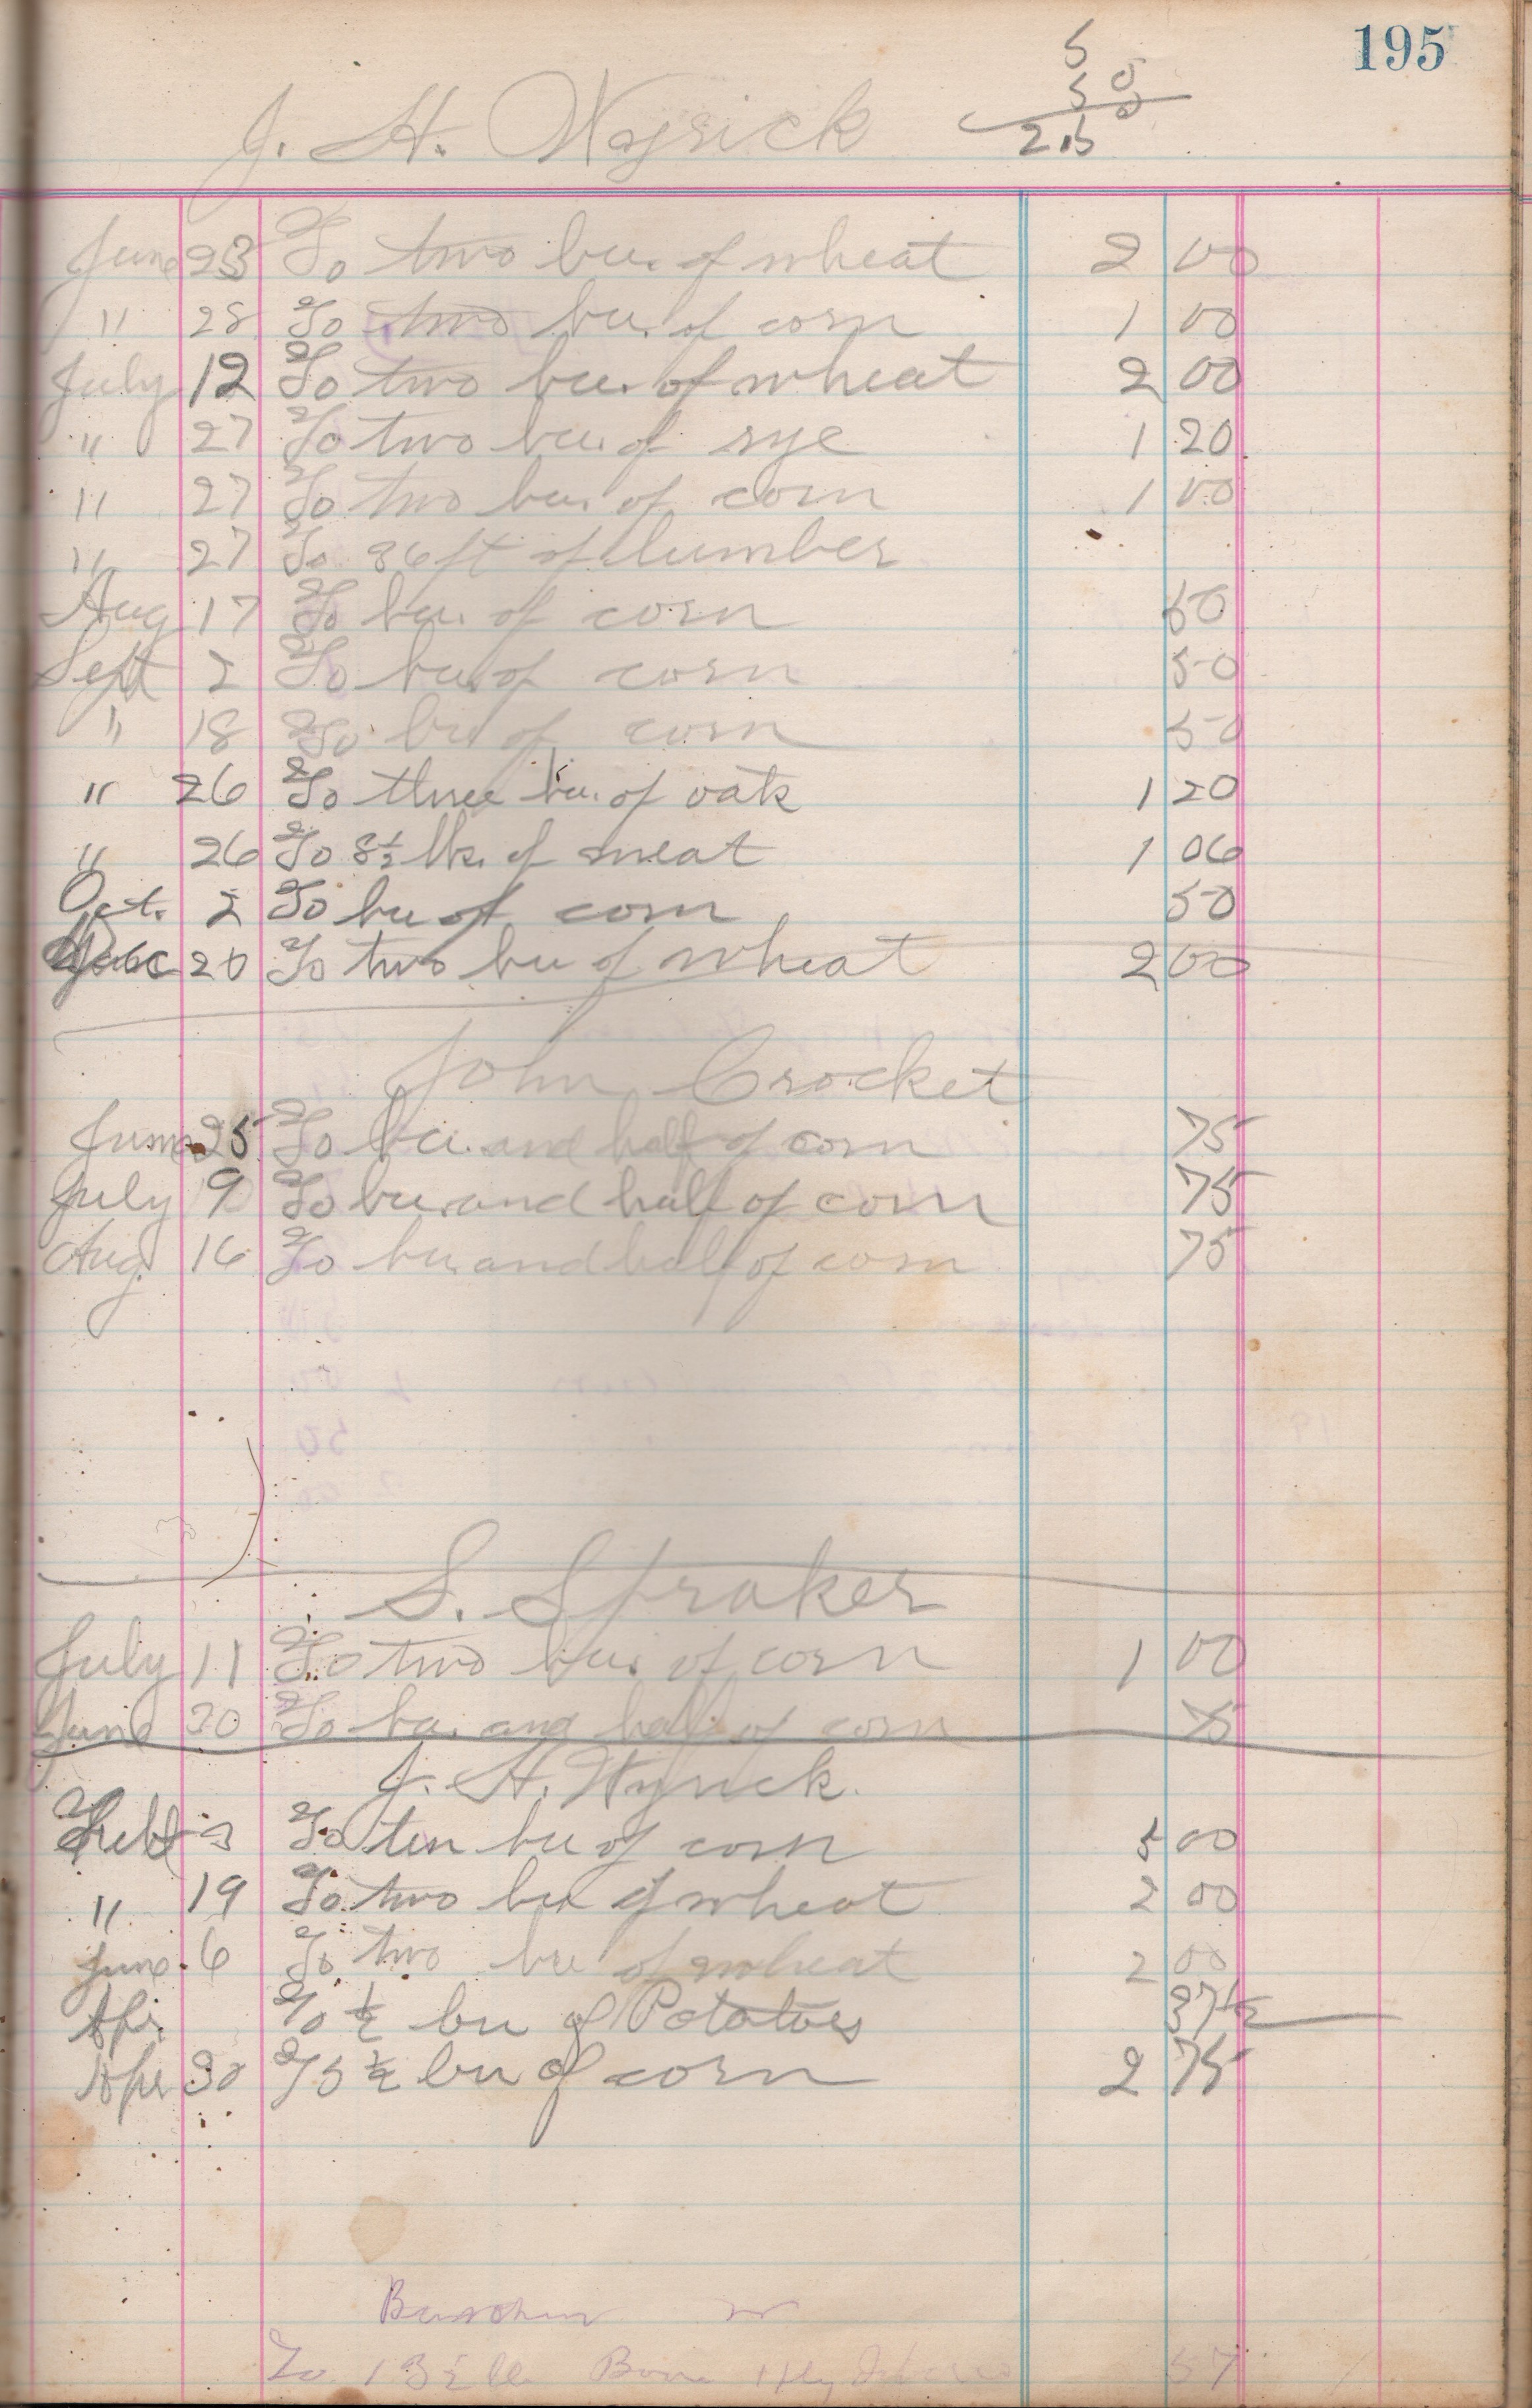 195
5
5 0
2.5 0
J. H. Wayrick
June 23 To two bu. of wheat 2 00
" 28 To two bu. of corn 1 00
July 12 To two bu. of wheat 2 00
" 27 To two bu. of rye 1 20
" 27 To two bu. of corn 1 00
" 27 To 36 ft of lumber
Aug 17 To bu. of corn 50
Sept 2 To bu. of corn 50
" 18 To bu of corn 50
" 26 To three bu. of oats 1 20
" 26 To 8½ lbs. of meat 1 06
Oct. 2 To bu of corn 50
20 To two bu of wheat 2 00
John Crocket
June 25 To bu. and half of corn 75
July 9 To bu. and half of corn 75
Aug. 16 To bu. and half of corn 75
S. Spraker
July 11 To two bu. of corn 1 00
June 30 To bu. and half of corn 75
J. H. Wyrick.
Feb 3 To ten bu of corn 5 00
" 19 To two bu of wheat 2 00
June 6 To two bu of wheat 2 00
Apr. To ½ bu of Potatoes 37½
Apr 30 To 5½ bu of corn 2 75
To 13½ lb 57